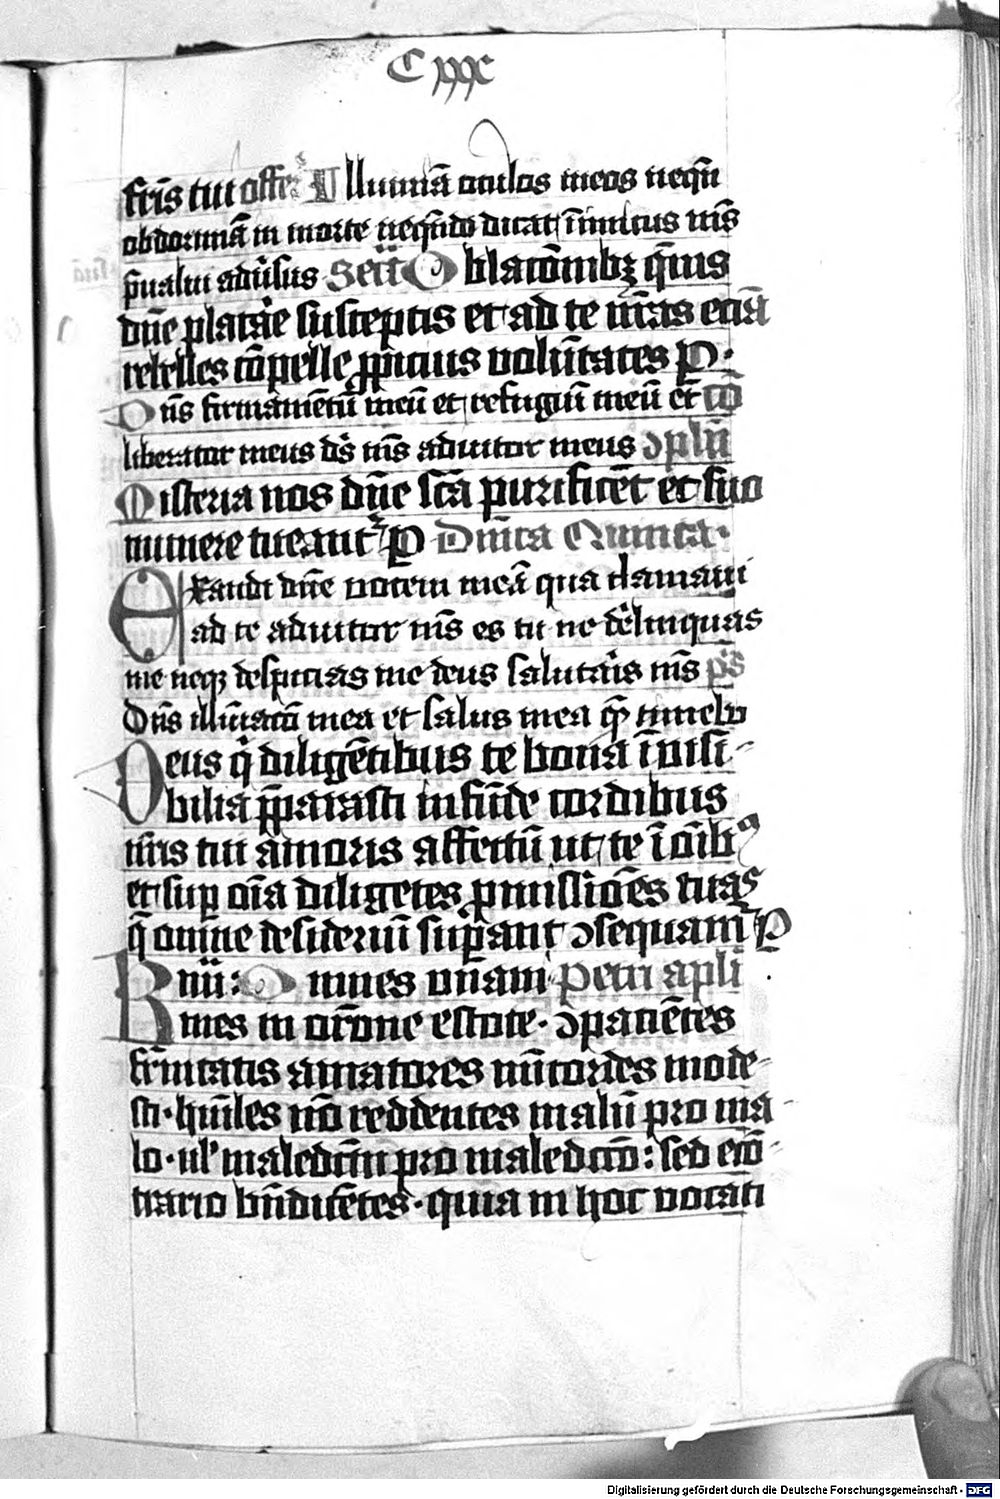 C xxx
fr̄is tui offr̄ Illumīa oculos meos nequn̄
obdormiā in morte neqn̄do dicat īimicus me͞s
p̄ualui adūsus Secr̄ Oblac̄onibꝫ q̄mus
dn̄e placare susceptis et ad te nr̄as eciā
rebelles cōpelle p̄picius volūtates P·
Dn̄s firmamētū meū et refugiū meū et cō
liberator meus ds̄ me͞s adiutor meus ꝯplū
Misteria nos dn̄e sc̄a purificēt et suo
munere tueant͛ P Dn̄ica Quinta·
Exaudi dn̄e vocem meā qua clamaui
ad te adiutor me͞s es tu ne derelinquas
me neqꝫ despicias me deus salutaris me͞s ps̄
Dn̄s illūiac̄o mea et salus mea q̄ timebo
Deus q̄ diligētibus te bona īuisi-
bilia p̄parasti infūde cordibus
nr̄is tui amoris affectū ut te ī oībꝰ
et sup̄ oīa diligētes p̄missiōes tuas
q̄ omn̄e desideriū sup̄ant ꝯsequam͛ P
Knī: Omnes vnanī Petri apl̄i
mes in or̄one estote· ꝯpaciētes
fr̄nitatis amatores mīcordes mode-
sti· huīles nō reddentes malū pro ma-
lo· ul̄ maledcm̄ pro maledcō: sed ecō-
trario bn̄dicētes· quia in hoc vocati
Digitalisierung gefördert durch die Deutsche Forschungsgemeinschaft - DFG